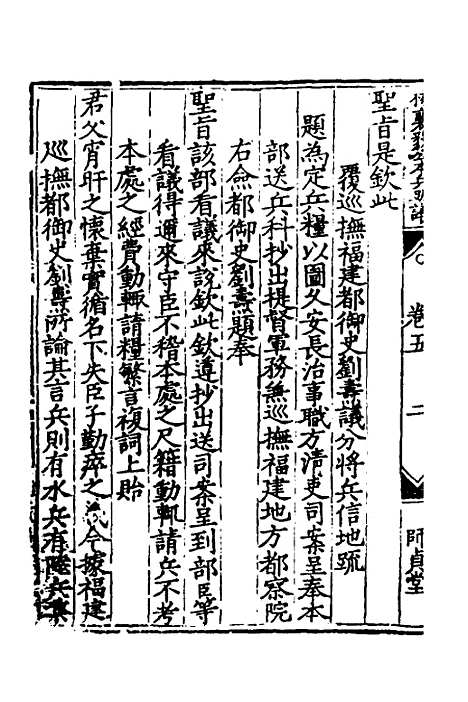 聖旨是欽此
覆巡撫福建都御史劉燾議分將兵信地疏
題為定兵糧以圖久安長治事職方清吏司案呈奉本
部送兵科抄出提督軍務兼巡撫福建地方都察院
右僉都御史劉燾題奉
聖旨該部看議來說欽此欽遵抄出送司案呈到部臣等
看議得邇來守臣不稽本處之尺籍動輒請兵不考
本處之經費動輒請糧繁言複詞上貽
君父宵旰之懷棄實循名下失臣子勤瘁之義今據福建
巡撫都御史劉燾所論其言兵則有水兵有陸兵
卷五
二
師貞堂